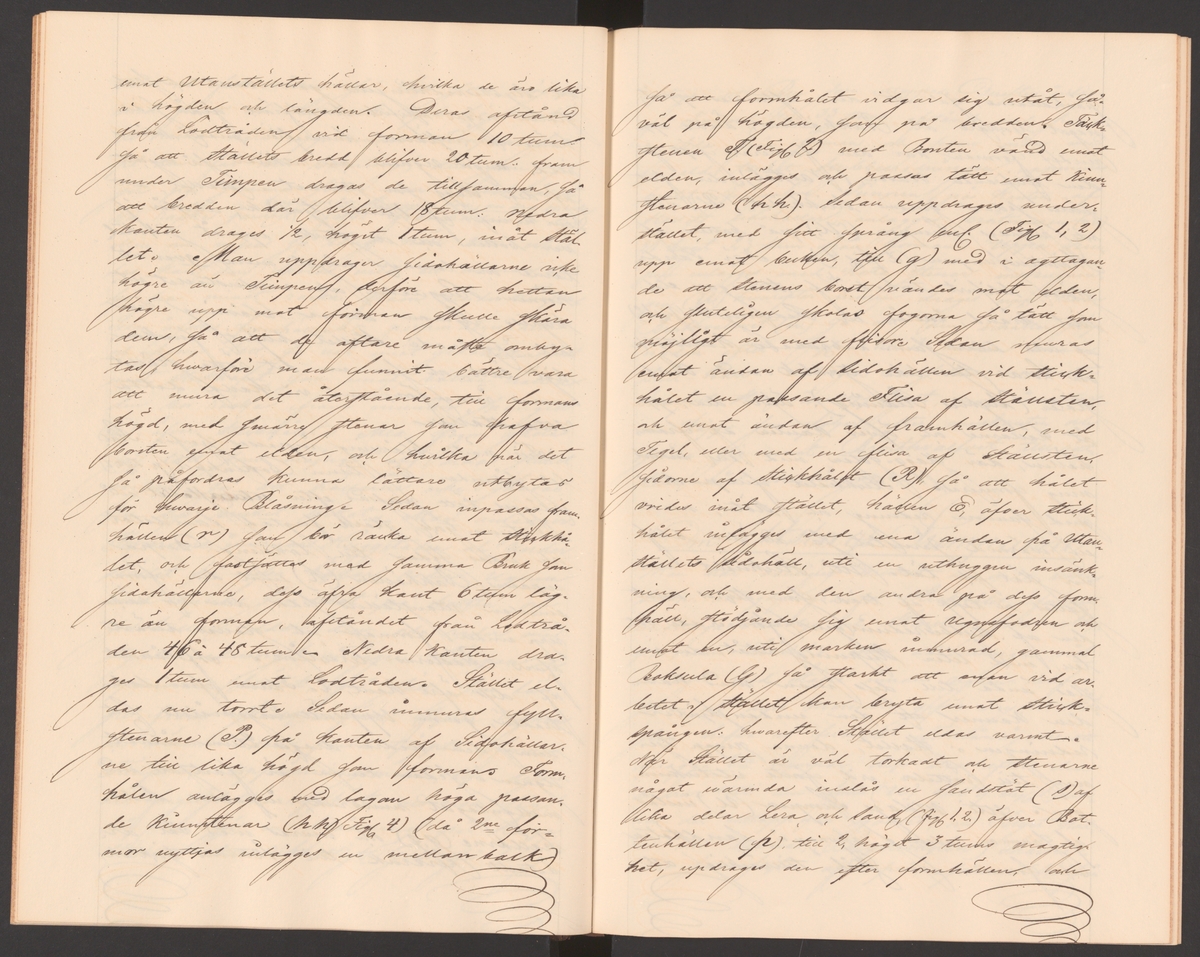 emot Utanställets hällar, hvilka de äro lika
i högden och längden. Deras afstånd
från Lodtråden vid forman 10 tum
så att Ställets bredd blifver 20 tum. fram
under Timpen dragas de tillsamman, så
att bredden där blifver 18 tum. nedra
Kanten drages 1/2, högst 1 tum, inåt Stäl-
let. Man uppdrager sidohällarne icke
högre än Timpen, derföre att hettan
högre upp mot forman skulle skära
dem, så att de oftare måste omby-
tas hwarföre man funnit bättre vara
att mura det återstående, till formans
högd, med smärre stenar som hafva
borsten emot elden, och hwilka när det
så påfordras kunna lättare utbytas
för hwarje Blåsning. Sedan inpassas fram-
hällen (r) som bör räcka emot Stickhå-
let, och fastsättas med samma Bruk som
sidohällarne, dess öfra Kant 6 tum läg-
re än forman, afståndet från Lodtrå-
den 46 à 48 tum. Nedra Kanten dra-
ges 1 tum emot Lodtråden. Stället el-
das nu torrt. Sedan inmuras fyll-
stenarne (P.) på Kanten af Sidohällar-
ne till lika högd som formans Form-
hålen anlägges med lagom höga passan-
de Kinnstenar (hh) Fig 4) (då 2ne for-
mor nyttjas inlägges en mellan balk)
så att formhålet vidgar sig utåt, så-
väl på högden, som på bredden. Täck-
stenen (Fig ) med Bonten vänd emot
elden, inlägges och passas tätt emot Kinn-
stenarne (hh). Sedan uppdrages under-
stället, med sitt språng (Fig 1, 2)
upp emot buken, till (g) med i agttagan-
de att Stenens borst vändes mot elden,
och sluteligen skolas fogorna så tätt som
möjligt är med Sedan muras
emot ändan af Sidohällen vid Stick-
hålet en passande Flisa af Ställsten,
och emot ändan af framhällen, med
Tegel, eller med en flisa af Ställsten,
sidorne af Stickhålet (R), så att hålet
vrides inåt stället, hällen öfver Stick-
hålet inlägges med ena ändan på Utan-
ställets Sidohäll, uti en uthuggen insänk-
ning, och med den andra på dess form-
häll, stödjande sig emot ugnsfodren och
emot en, uti marken inmurad, gammal
Boksula (G) så starkt att man vid ar-
betet i Stället Kan bryta emot Stick-
spången. hwarefter Stället eldas varmt.
När Stället är väl torkadt och Stenarne
något wärmda inslås en Sandstöt (s) af
lika delar Lera och Sand, (Fig 1, 2) öfver Bot-
tenhällen (p) till 2, högst 3 tums mägtig-
het, updrages den efter formhällen, och